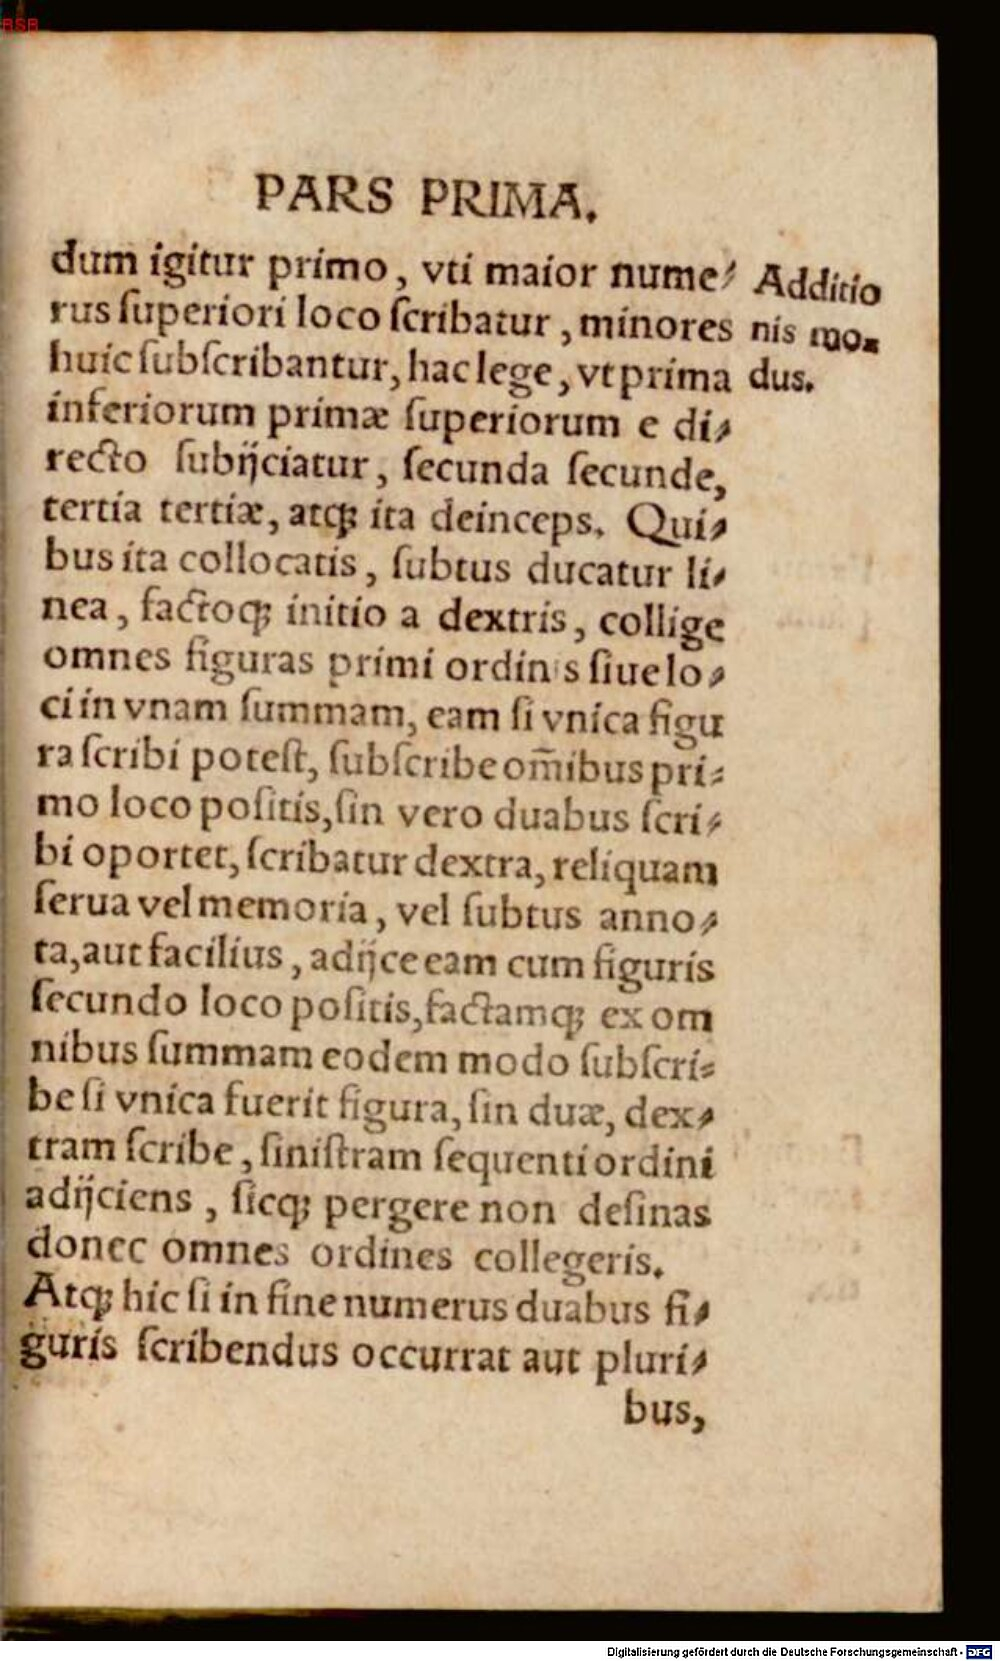 BSB
PARS PRIMA.
dum igitur primo, vti maior nume⸗
rus ſuperiori loco ſcribatur, minores
huic ſubſcribantur, hac lege, vt prima
inferiorum primæ ſuperiorum e di⸗
recto ſubijciatur, ſecunda ſecunde,
tertia tertiæ, atqꝫ ita deinceps. Qui⸗
bus ita collocatis, ſubtus ducatur li⸗
nea, factoqꝫ initio a dextris, collige
omnes figuras primi ordinis ſiue lo⸗
ci in vnam ſummam, eam ſi vnica figu
ra ſcribi poteſt, ſubſcribe om̄ibus pri⸗
mo loco poſitis, ſin vero duabus ſcri⸗
bi oportet, ſcribatur dextra, reliquam
ſerua vel memoria, vel ſubtus anno⸗
ta, aut facilius, adijce eam cum figuris
ſecundo loco poſitis, factamqꝫ ex om
nibus ſummam eodem modo ſubſcri⸗
be ſi vnica fuerit figura, ſin duæ, dex⸗
tram ſcribe, ſiniſtram ſequenti ordini
adijciens, ſicqꝫ pergere non deſinas
donec omnes ordines collegeris.
Atqꝫ hic ſi in fine numerus duabus fi⸗
guris ſcribendus occurrat aut pluri⸗
bus,
Additio
nis mo⸗
dus.
Digitalisierung gefördert durch die Deutsche Forschungsgemeinschaft - DFG